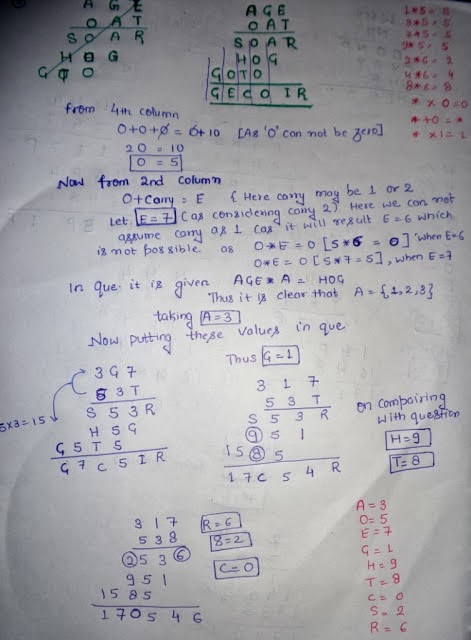 A G E
O A T
S O A R
H O G
G O T O
A G E
O A T
S O A R
H O G
G O T O
G E C O I R
1*5=5
3*5=5
7*5=5
9*5=5
2*6=2
4*6=4
8*6=8
* x 0=0
*+0=*
*x1=1
from 4th column
0+0+0 = 0+10 [As 'O' can not be zero]
20 = 10
O = 5
Now from 2nd column
O+Carry = E { Here carry may be 1 or 2
Let E=7 (as considering carry 2) Here we can not
assume carry as 1 (as it will result E=6 which
is not possible as O*E = O [5*6 = 0] when E=6
O*E = O [5*7=5], when E=7
In que. it is given AGE * A = HOG
Thus it is clear that A = {1,2,3}
taking A=3
Now putting these values in que
Thus G=1
3 G 7
5 3 T
S 5 3 R
H 5 G
G 5 T 5
G 7 C 5 I R
5x3=15
3 1 7
5 3 T
S 5 3 R
9 5 1
1 5 8 5
1 7 C 5 4 R
on compairing
with question
H=9
T=8
3 1 7
5 3 8
2 5 3 6
9 5 1
1 5 8 5
1 7 0 5 4 6
R=6
8=2
C=0
A=3
O=5
E=7
G=1
H=9
T=8
C=0
S=2
R=6